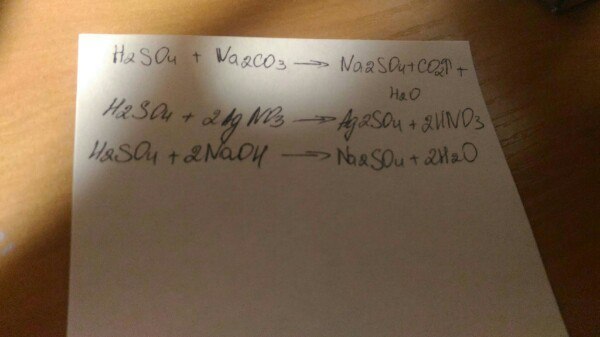 H2SO4 + Na2CO3 → Na2SO4+CO2↑+
H2O
H2SO4 + 2AgNO3 → Ag2SO4 + 2HNO3
H2SO4 + 2NaOH → Na2SO4 + 2H2O